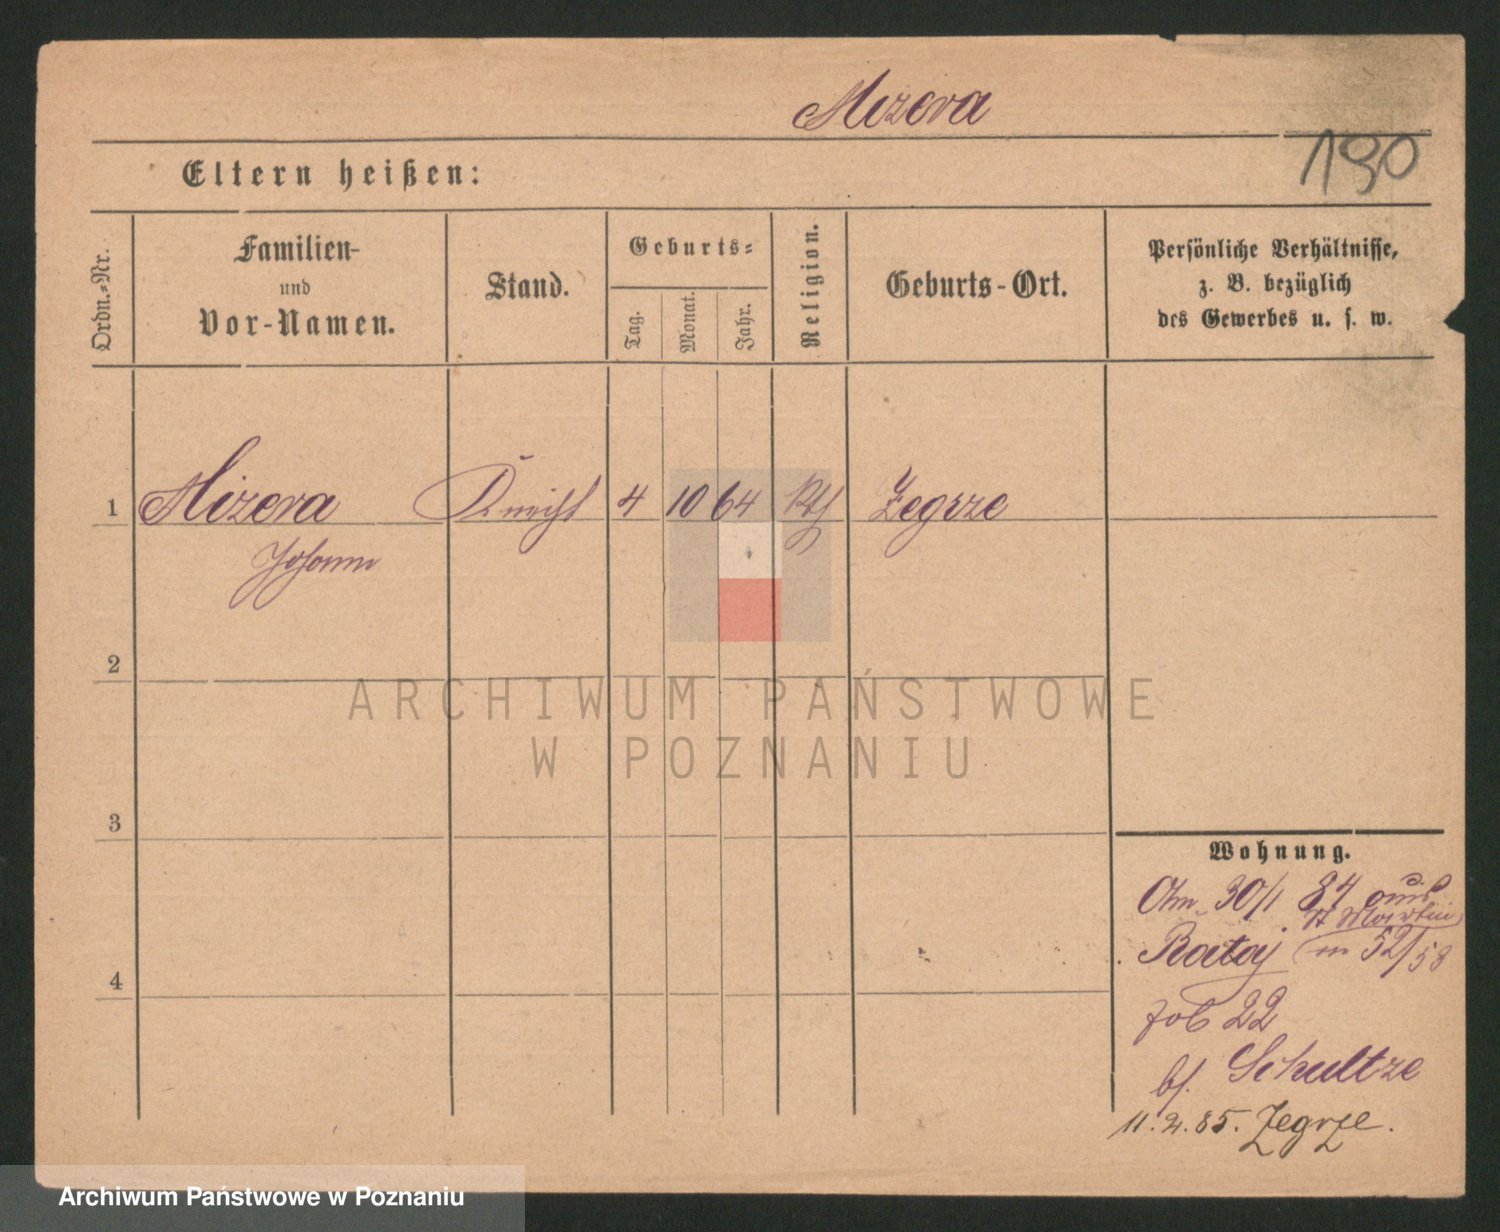 Mizera
190
Eltern heißen:
Ordn.-Nr.
Familien-
und
Vor-Namen.
Stand.
Geburts-
Tag.
Monat.
Jahr.
Religion.
Geburts-Ort.
Persönliche Verhältnisse,
z. B. bezüglich
des Gewerbes u. s. w.
1 Mizera Knecht 4 10 64 kth Zegrze
Johann
2
3
4
Wohnung.
30/1 84 aus
St Martin
Rataj 52/58
22
Schultze
11.2.85. Zegrze.
ARCHIWUM PAŃSTWOWE
W POZNANIU
Archiwum Państwowe w Poznaniu